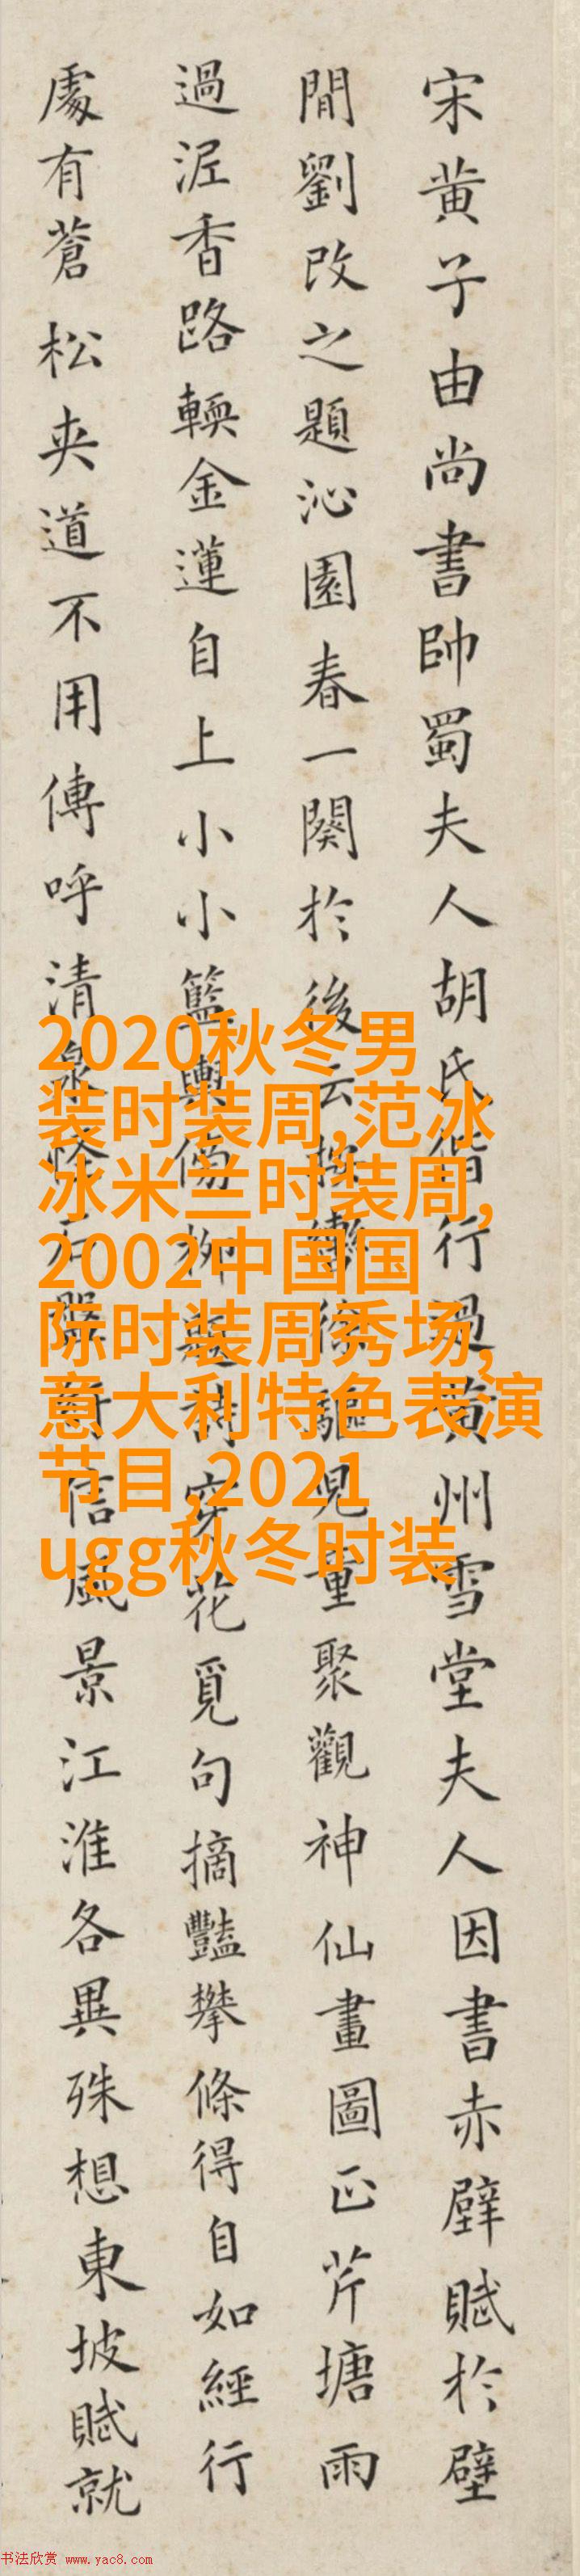 宋黄子由尚書帥蜀夫人胡氏偕行過黄州雪堂夫人因書赤壁賦於壁
間劉改之題沁園春一闋於後云按轡徐驅兒童聚觀神仙畫圖正芹塘雨
過泥香路輭金蓮自上小小籃輿傍柳題詩穿花覓句摘豔攀條得自如經行
處有蒼松夾道不用傳呼清泉怪石盤信風景江淮各異殊想東坡賦就
2020秋冬男
装时装周,范冰
冰米兰时装周,
2002中国国
际时装周秀场,
意大利特色表演
节目,2021
ugg秋冬时装
书法欣赏 www.yac8.com